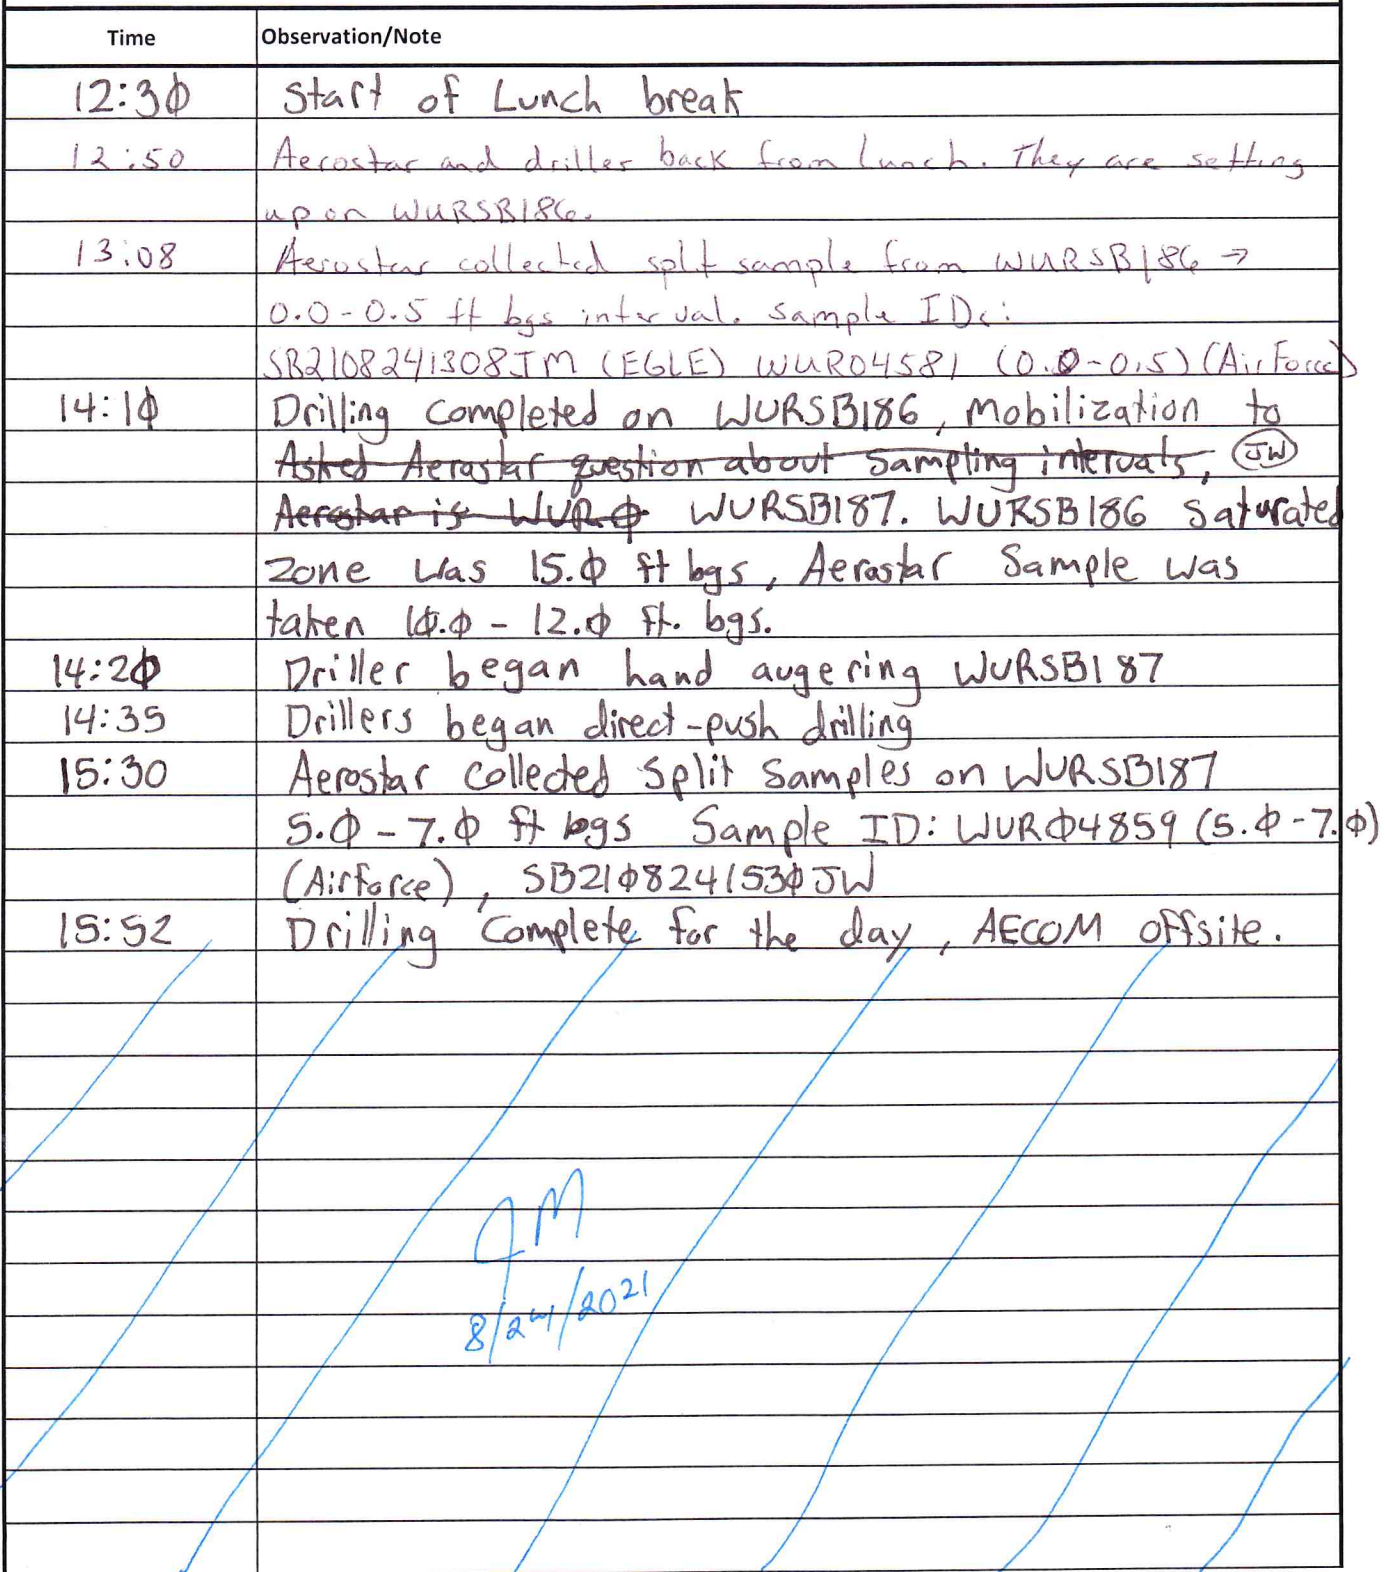 Time Observation/Note
12:3Ø Start of Lunch break
12:50 Aerostar and driller back from lunch. They are setting
up on WURSB186.
13:08 Aerostar collected split sample from WURSB186 →
0.0-0.5 ft bgs interval. Sample IDs:
SB2108241308JM (EGLE) WUR04581 (0.0-0.5) (Air Force)
14:1Ø Drilling completed on WURSB186, Mobilization to
Asked Aerostar question about sampling intervals, JW
Aerostar is WURØ WURSB187. WURSB186 Saturated
zone was 15.Ø ft bgs, Aerostar Sample was
taken 1Ø.Ø - 12.Ø ft. bgs.
14:2Ø Driller began hand augering WURSB187
14:35 Drillers began direct-push drilling
15:30 Aerostar collected split samples on WURSB187
5.Ø-7.Ø ft bgs Sample ID: WURØ4859 (5.Ø-7.Ø)
(Airforce), SB21Ø824153ØJW
15:52 Drilling Complete for the day, AECOM offsite.
JM
8/24/2021